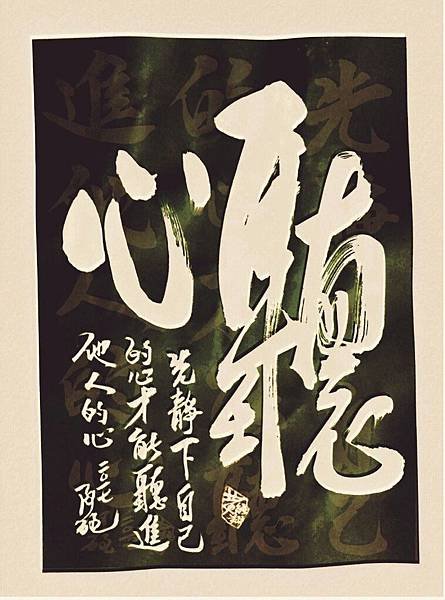 聽心
先靜下自己
的心才能聽進
他人的心